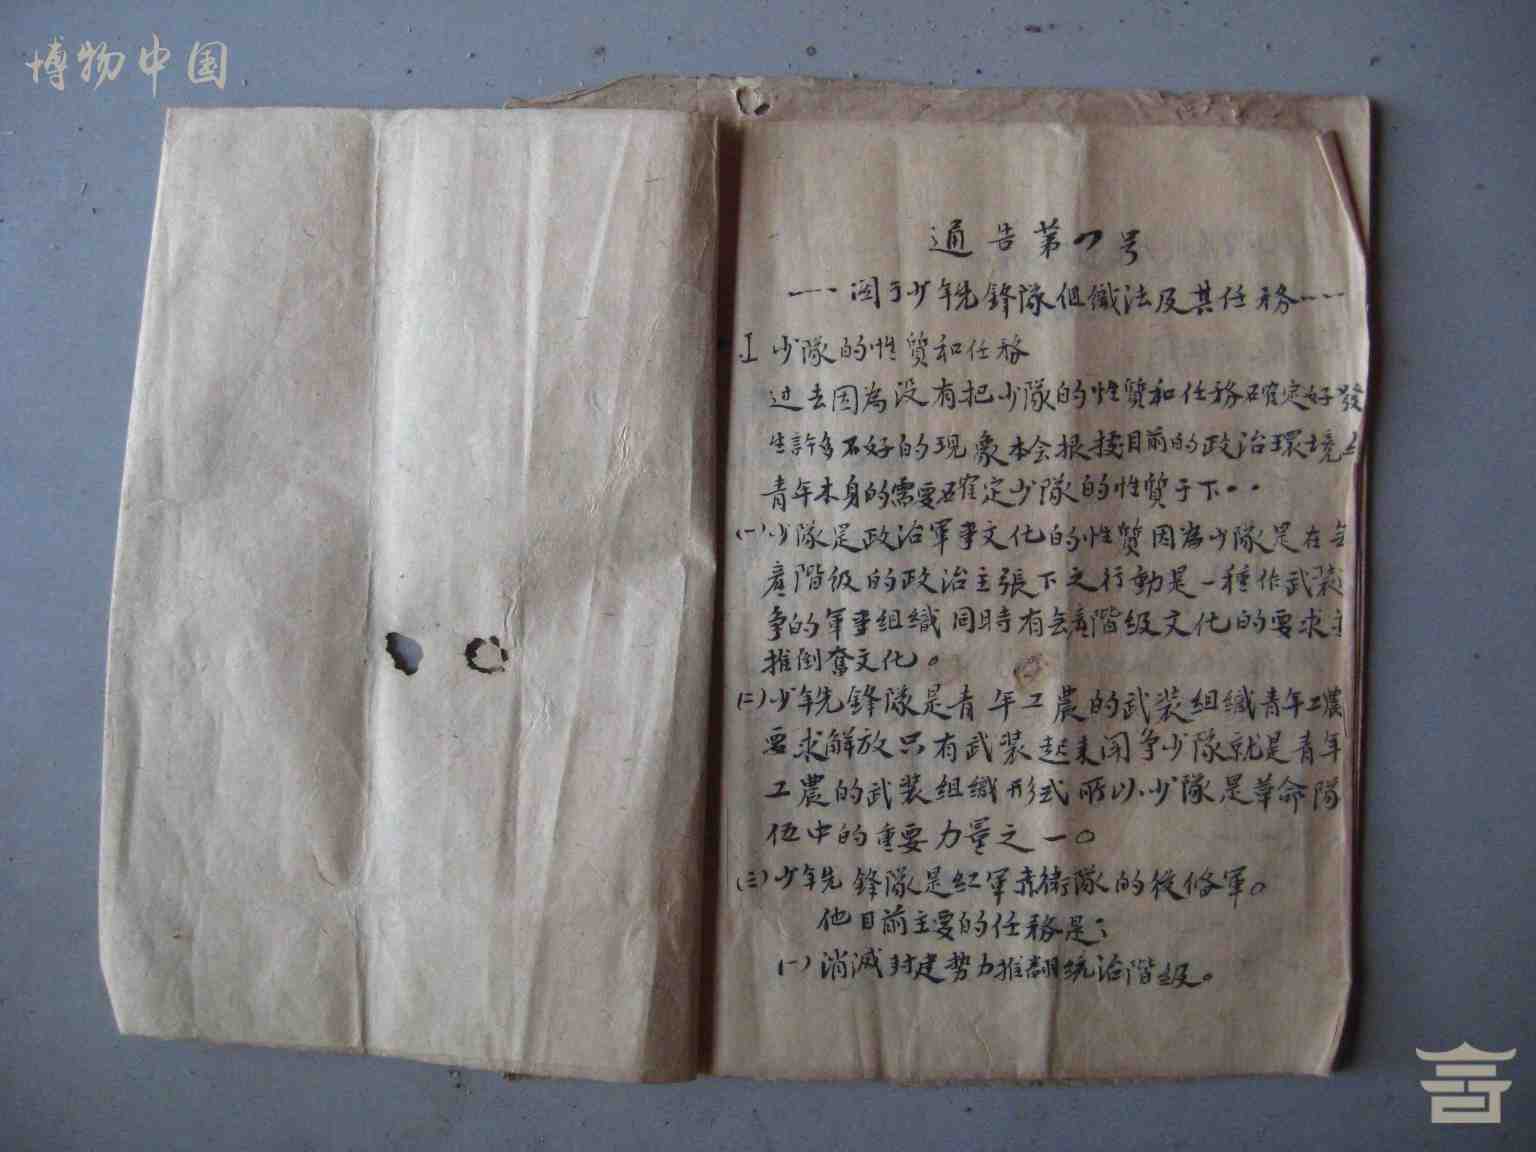 博物中国
通告第八号
関于少年先鋒隊组織法及其任務
I 少隊的性質和任務
过去因為没有把少隊的性質和任務確定好發
生許多不好的现象本会根据目前的政治環境
青年本身的需要確定少隊的性質于下
(一)少隊是政治軍事文化的性質因為少隊是在
産階级的政治主張下之行動是一種作武装
争的軍事组織同時有産階级文化的要求
推倒奮文化。
(二)少年先鋒隊是青年工農的武装组織青年工農
要求解放只有武装起来闹争少隊就是青年
工農的武装组織形式所以少隊是革命隊
伍中的重要力量之一。
(三)少年先鋒隊是红軍赤衛隊的後俻軍。
他目前主要的任務是:
(一)消滅封建势力推翻统治階级。